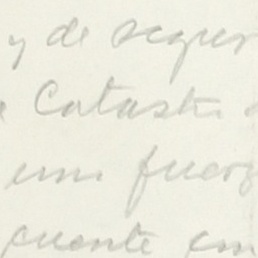 y de segur
Catastr
una fuerz
cuente con